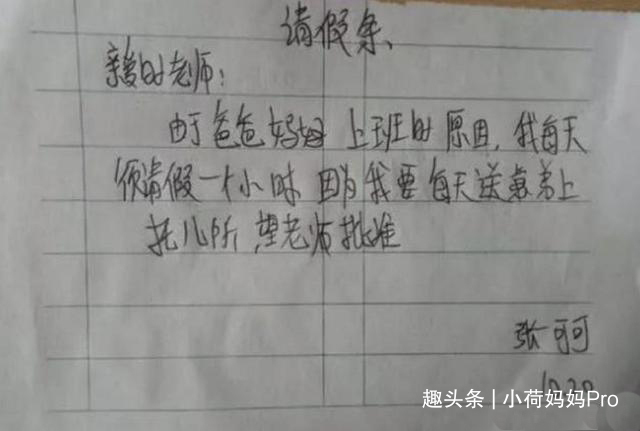 请假条、
亲爱的老师:
由于爸爸妈妈上班的原因,我每天
须请假一个小时因为我要每天送弟弟上
托儿所,望老师批准
张可可
10.20
趣头条 | 小荷妈妈Pro